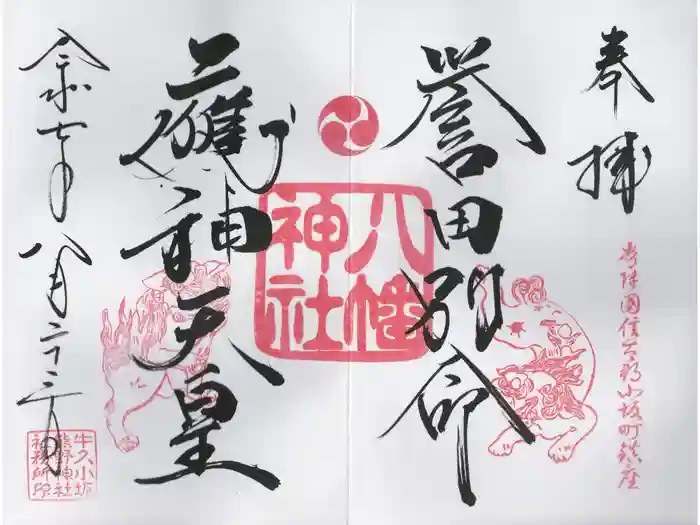 奉拝
常陸国信太郡小坂町鎮座
誉田別命
八幡神社
應神天皇
令和七年八月二十三日
牛久小坂
熊野神社
社務所印